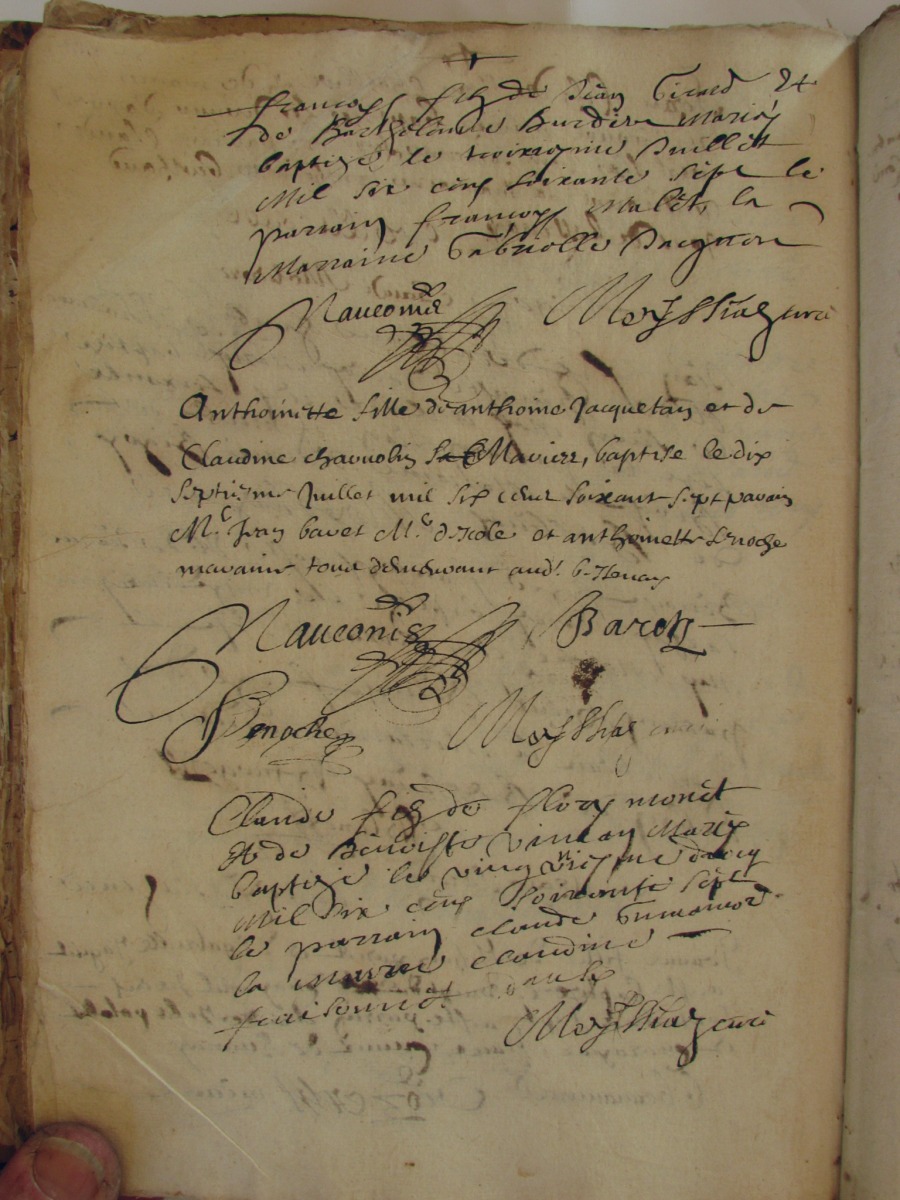 françoys filz de Jean Girard et
de Barthelemie Burdin Mariés
baptizé le troixiesme Juillet
Mil six cens soixante sept le
parrain françoys Malet, la
Marraine Gabrielle
Mauconis Meyssias curé
Anthoinette fille de anthoine Jacquetan et de
Claudine Mariez, baptise le dix
septiesme Juillet mil six cens soixant sept parain
Me Jean baret Me descole et anthoinette benoche
maraine tous demeurant aud.
Mauconis Baron
Benoche Meyssias
Claude filz de fleury monet
et de benoiste Mariés
baptizé le vingt
Mil six cens soixante sept
le parrain claude
la marrene claudine

Meyssias curé